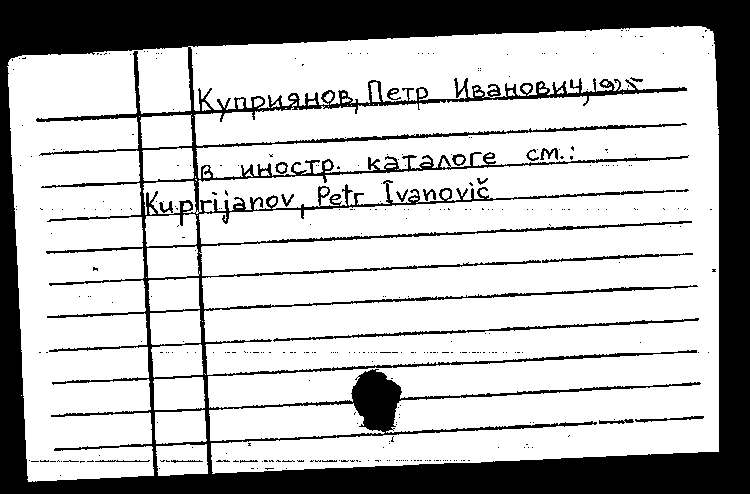 Куприянов, Петр Иванович, 1925
в иностр. каталоге см.:
Kuprijanov, Petr Ivanovič